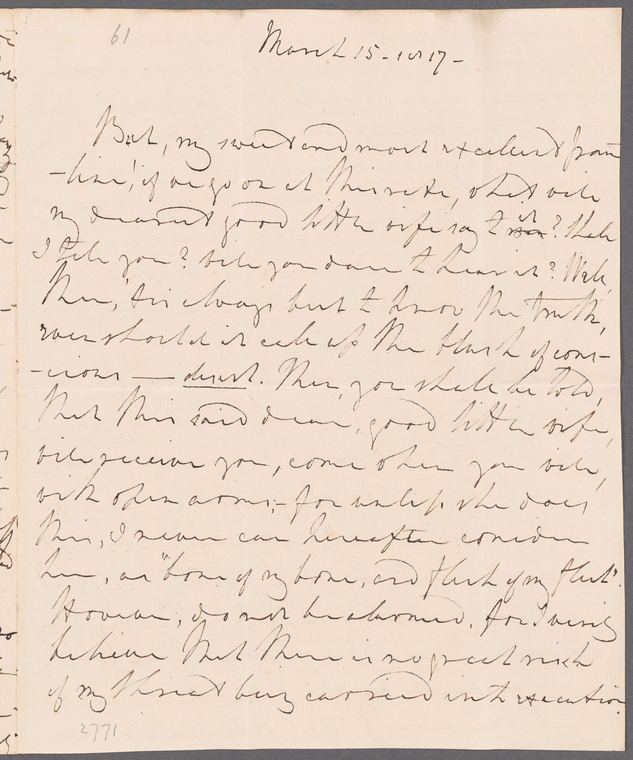 61
March 15 - 1817 -
But, my sweet and most excellent from
-line, if we go on at this rate, what will
my dearest good little wife say to it? Shall
I tell you? will you dare to hear it? Well,
then, 'tis always best to know the truth,
even should it call up the blush of cons-
-cious — desert. Then, you shall be told,
that this said dear, good little wife,
will receive you, come when you will,
with open arms; - for unless she does
this, I never can hereafter consider
her, as "bone of my bone, and flesh of my flesh".
However, do not be alarmed, for I verily
believe that there is no great risk
of my threat being carried into execution.
2771